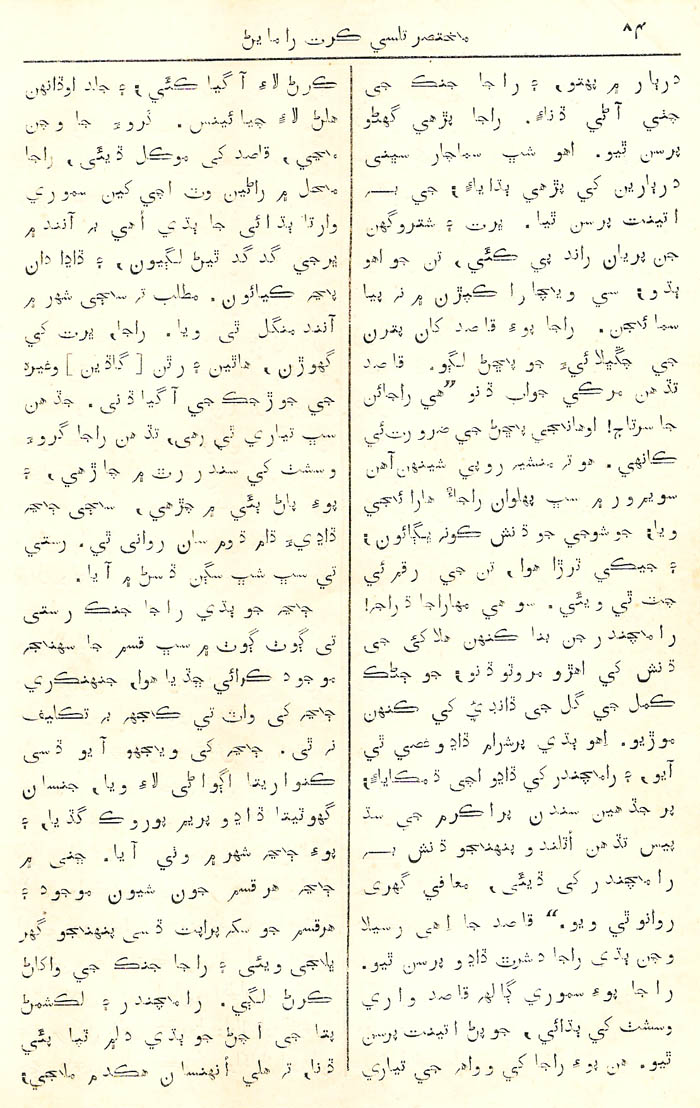 ۸۴
مختصر تلسي ڪرت رامايڻ
دربار ۾ پهتو، ۽ راجا جنڪ جي
چٺي آڻي ڏناءِ. راجا پڙهي گهڻو
پرسن ٿيو. اهو شڀ سماچار سڀني
درٻارين کي پڙهي ٻڌاياءِ؛ جي بہ
اتينت پرسن ٿيا. ڀرت ۽ شتروگهن
جن پريان راند پي ڪئي، تن جو اهو
ٻڌو؛ سي ويچارا ڪپڙن ۾ نہ پيا
سمائجن. راجا پوءِ قاصد کان پٽرن
جي چڱيلائيءَ جو پڇڻ لڳو. قاصد
تڏهن مرڪي جواب ڏنو ”هي راجائن
جا سرتاج! اوهانجي پڇڻ جي ضرورت ئي
ڪانهي. هو تہ منشيہ روپي شينهن آهن
سويمور ۾ سڀ پهلوان راجائُ هارائجي
ويا؛ جو شوجي جو ڌنش ڪونہ ڀڳائون؛
۽ جيڪي ٿرڙا هوا، تن جي رقم ئي
چٽ ٿي ويئي. سو هي مهاراجا ڌراج!
رامچندر جن بنا ڪنهن هلاکئي جي
ڌنش کي اهڙو مروٽو ڏنو؛ جو ڄڻڪ
ڪمل جي گل جي ڏانڊيءَ کي ڪنهن
موڙيو. اهو ٻڌي پرشرام ڏاڍو غصي ٿي
آيو، ۽ رامچندر کي ڏاڍو اچي ڌمڪاياءِ؛
پر جڏهين سندن پراڪرم جي سڌ
پيس تڏهن اُٿلندو پنهنجو ڌنش بہ
رامچندر کي ڏيئي، معافي گهري
روانو ٿي ويو.“ قاصد جا اهي رسيلا
وچن ٻڌي راجا دشرٿ ڏاڍو پرسن ٿيو.
راجا پوءِ سموري ڳالهہ قاصد واري
وسشٽ کي ٻڌائي، جو پڻ اتينت پرسن
ٿيو. هن پوءِ راجا کي وواهہ جي تياري
ڪرڻ لاءِ آگيا ڪئي؛ ۽ جلد اوڏانهن
هلڻ لاءِ چيائينس. گروءَ جا وچن
مڃي، قاصد کي موڪل ڏيئي، راجا
محل ۾ راڻين وٽ اچي کين سموري
وارتا ٻڌائي جا ٻڌي اُهي بہ آنند ۾
ڀرجي گد گد ٿيڻ لڳيون، ۽ ڏاڍا دان
پڃ ڪيائون. مطلب تہ سڄي شهر ۾
آنند منگل ٿي ويا. راجا، ڀرت کي
گهوڙن، هاٿين ۽ رٿن [گاڏين] وغيره
جي جوڙجڪ جي آگيا ڏني. جڏهن
سڀ تياري ٿي رهي، تڏهن راجا گروءَ
وسشٽ کي سندر رٿ ۾ چاڙهي، ۽
پوءِ پاڻ ٻئي ۾ چڙهي، سڄي ڄڃ
ڏاڍيءَ ڌام ڌوم سان رواني ٿي. رستي
تي سڀ شڀ سڳڻ ڏسڻ ۾ آيا.
ڄڃ جو ٻڌي راجا جنڪ رستي
تي ڳوٺ ڳوٺ ۾ سڀ قسم جا سهنج
موجود ڪرائي ڇڏيا هوا، جنهنڪري
ڄڃ کي واٽ تي ڪجهہ بہ تڪليف
نہ ٿي. ڄڃ کي ويجهو آيو ڏسي
ڪنواريتا اڳواڻي لاءِ ويا، جنسان
گهوٽيتا ڏاڍو پريم پوروڪ گڏيا، ۽
پوءِ ڄڃ شهر ۾ وٺي آيا. جنهي ۾
ڄڃ هر قسم جون شيون موجود ۽
هرقسم جو سک پراپت ڏسي پنهنجو گهر
ڀلجي ويئي ۽ راجا جنڪ جي واکاڻ
ڪرڻ لڳي. رامچندر ۽ لڪشمڻ
پتا جي اچڻ جو ٻڌي دلم ٿپا پئي
ڏنا، تہ هلي اُنهنسان هڪدم ملجي؛